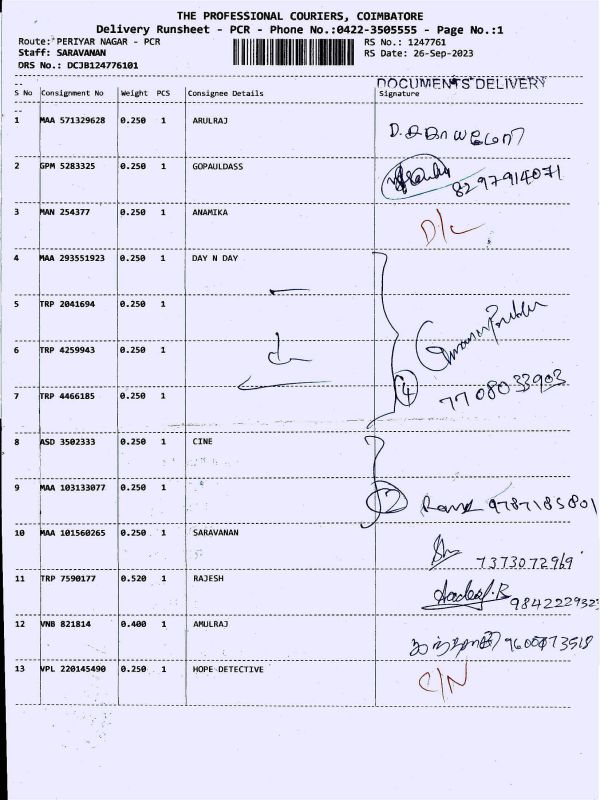 THE PROFESSIONAL COURIERS, COIMBATORE
Delivery Runsheet - PCR - Phone No.:0422-3505555 - Page No.:1
Route: PERIYAR NAGAR - PCR RS No.: 1247761
Staff: SARAVANAN RS Date: 26-Sep-2023
DRS No.: DCJB124776101
DOCUMENTS DELIVERY
S No Consignment No Weight PCS Consignee Details Signature
1 MAA 571329628 0.250 1 ARULRAJ
2 GPM 5283325 0.250 1 GOPAULDASS 8297914071
3 MAN 254377 0.250 1 ANAMIKA D/L
4 MAA 293551923 0.250 1 DAY N DAY
5 TRP 2041694 0.250 1
6 TRP 4259943 0.250 1
7 TRP 4466185 0.250 1 4 7708033903
8 ASD 3502333 0.250 1 CINE
9 MAA 103133077 0.250 1 2 9787185801
10 MAA 101560265 0.250 1 SARAVANAN 7373072969
11 TRP 7590177 0.520 1 RAJESH
12 VNB 821814 0.400 1 AMULRAJ
13 VPL 220145490 0.250 1 HOPE DETECTIVE C/N